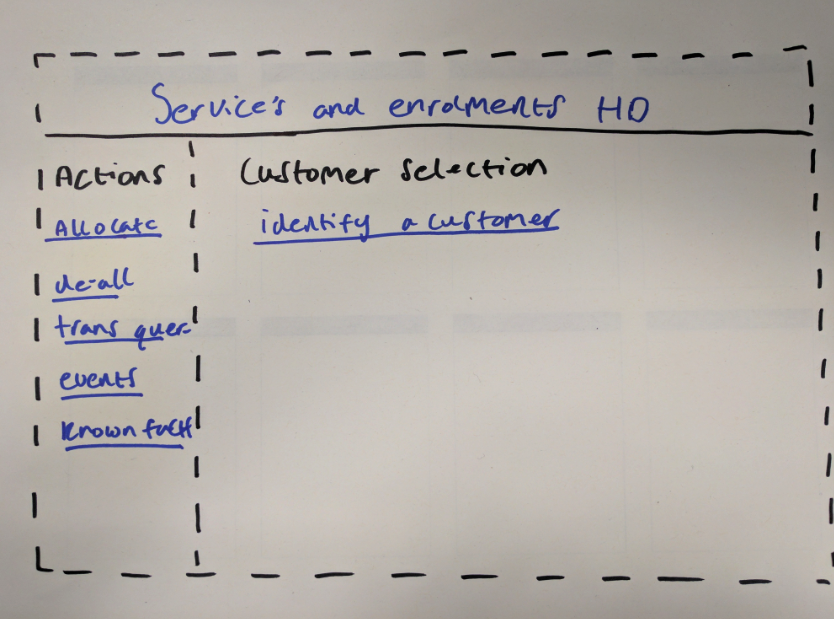 Service's and enrolments HO
Actions
Allocate
de-all
trans quer
events
known fact
Customer selection
identify a customer